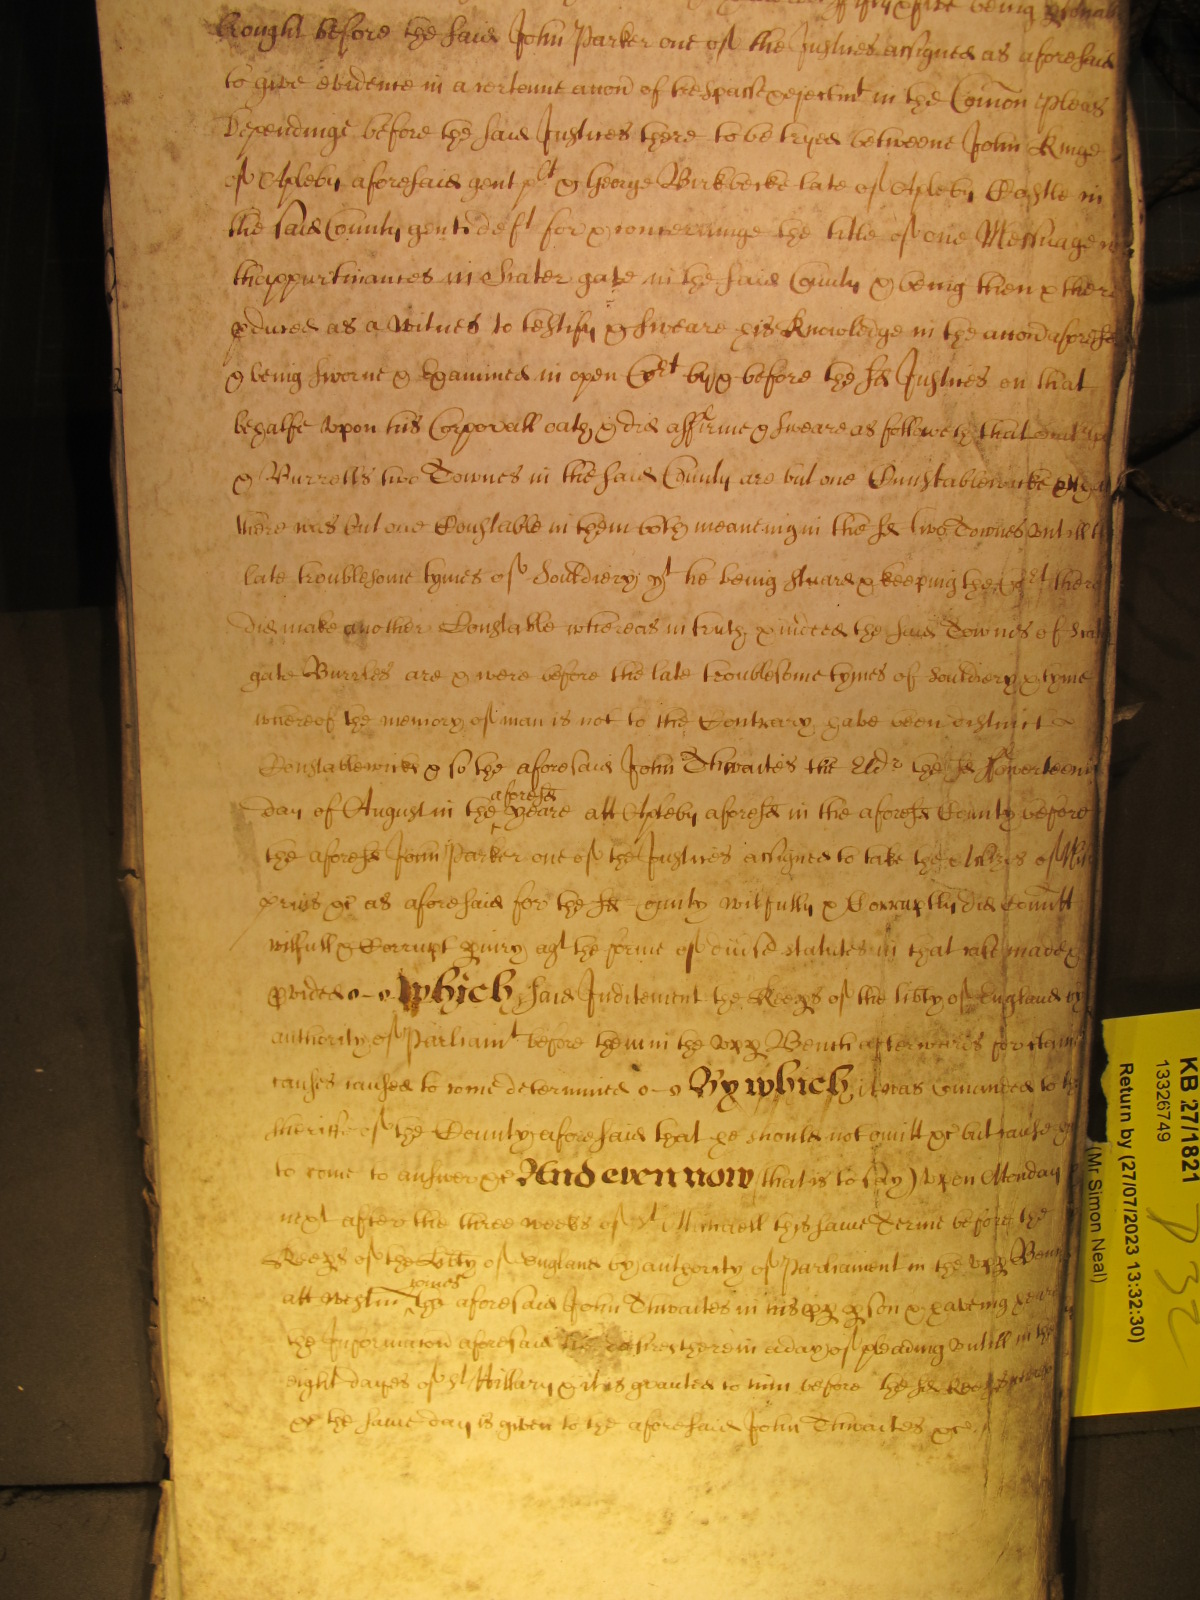 fifty & five being
brought before the said John Parker one of the Justices assigned as aforesaid
to give evidence in a certeine accon of trespasse & ejectmt in the Comon Pleas
Dependinge before the said Justices there to be tryed betweene John Kinge
of Apleby aforesaid gent plt & George Birkbecke late of Apleby Castle in
the said County gent deft for & concerninge the title of one Messuage
thappurtinances in Scater gate in the said County & being then & there
pduced as a witnes to testify & sweare his knowledge in the accon aforesd
& being sworne & Examined in open Cort by & before the sd Justices on that
behalfe upon his Corporall oath & did affirme & sweare as followeth that
& Burrells two Townes in the said County are but one Cunstablewicke
there was but one Constable in them both meaneing in the sd two Townes untill
late troublesome tymes of Souldiery yt he being stuard & keeping the Cort there
did make another Constable whereas in truth & indeed the said Townes of
gate Burrles are & were before the late troublesome tymes of Souldiery & tyme
whereof the memory of man is not to the Contrary have been distinct
Constablewicks & so the aforesaid John Thwaites the Eldr the sd fowerteen
day of August in the aforesd yeare att Apleby aforesd in the aforesd County before
the aforesd John Parker one of the Justices assigned to take the Assizes of Nisi
prius &c as aforesaid for the sd County wilfully & Corruptly did Comitt
wilfull & Corrupt piury agt the forme of divse statutes in that case made &
pvided o-o Which said Inditement the Keeps of the libty of England by
authority of Parliamt before them in the upp Bench afterwards for certaine
causes caused to come determined o-o By which it was comanded to the
Sheriffe of the County aforesaid that he should not omitt &c but cause
to come to answer &c And even now (that is to say) upon Monday
next after the three weeks of St Michaell this same Terme before the
Keeps of the Libty of England by authority of Parliament in the upp Bench
att Westm comes the aforesaid John Thwaites in his pp pson & haveing heard
the Informacon aforesaid he desires therein a day of pleading untill in the
eight dayes of St Hillary & it is granted to him before the sd Keeps
&c the same day is given to the aforesaid John Thwaites &c.
KB 27/1821
13326749
Return by (27/07/2023 13:32:30)
(Mr Simon Neal)